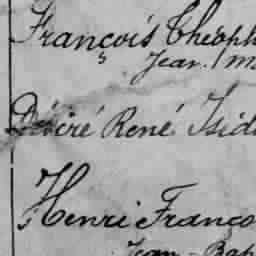 François Théoph
Jean. / m
Désiré René Isid
Henri Franco
Jean - Bap